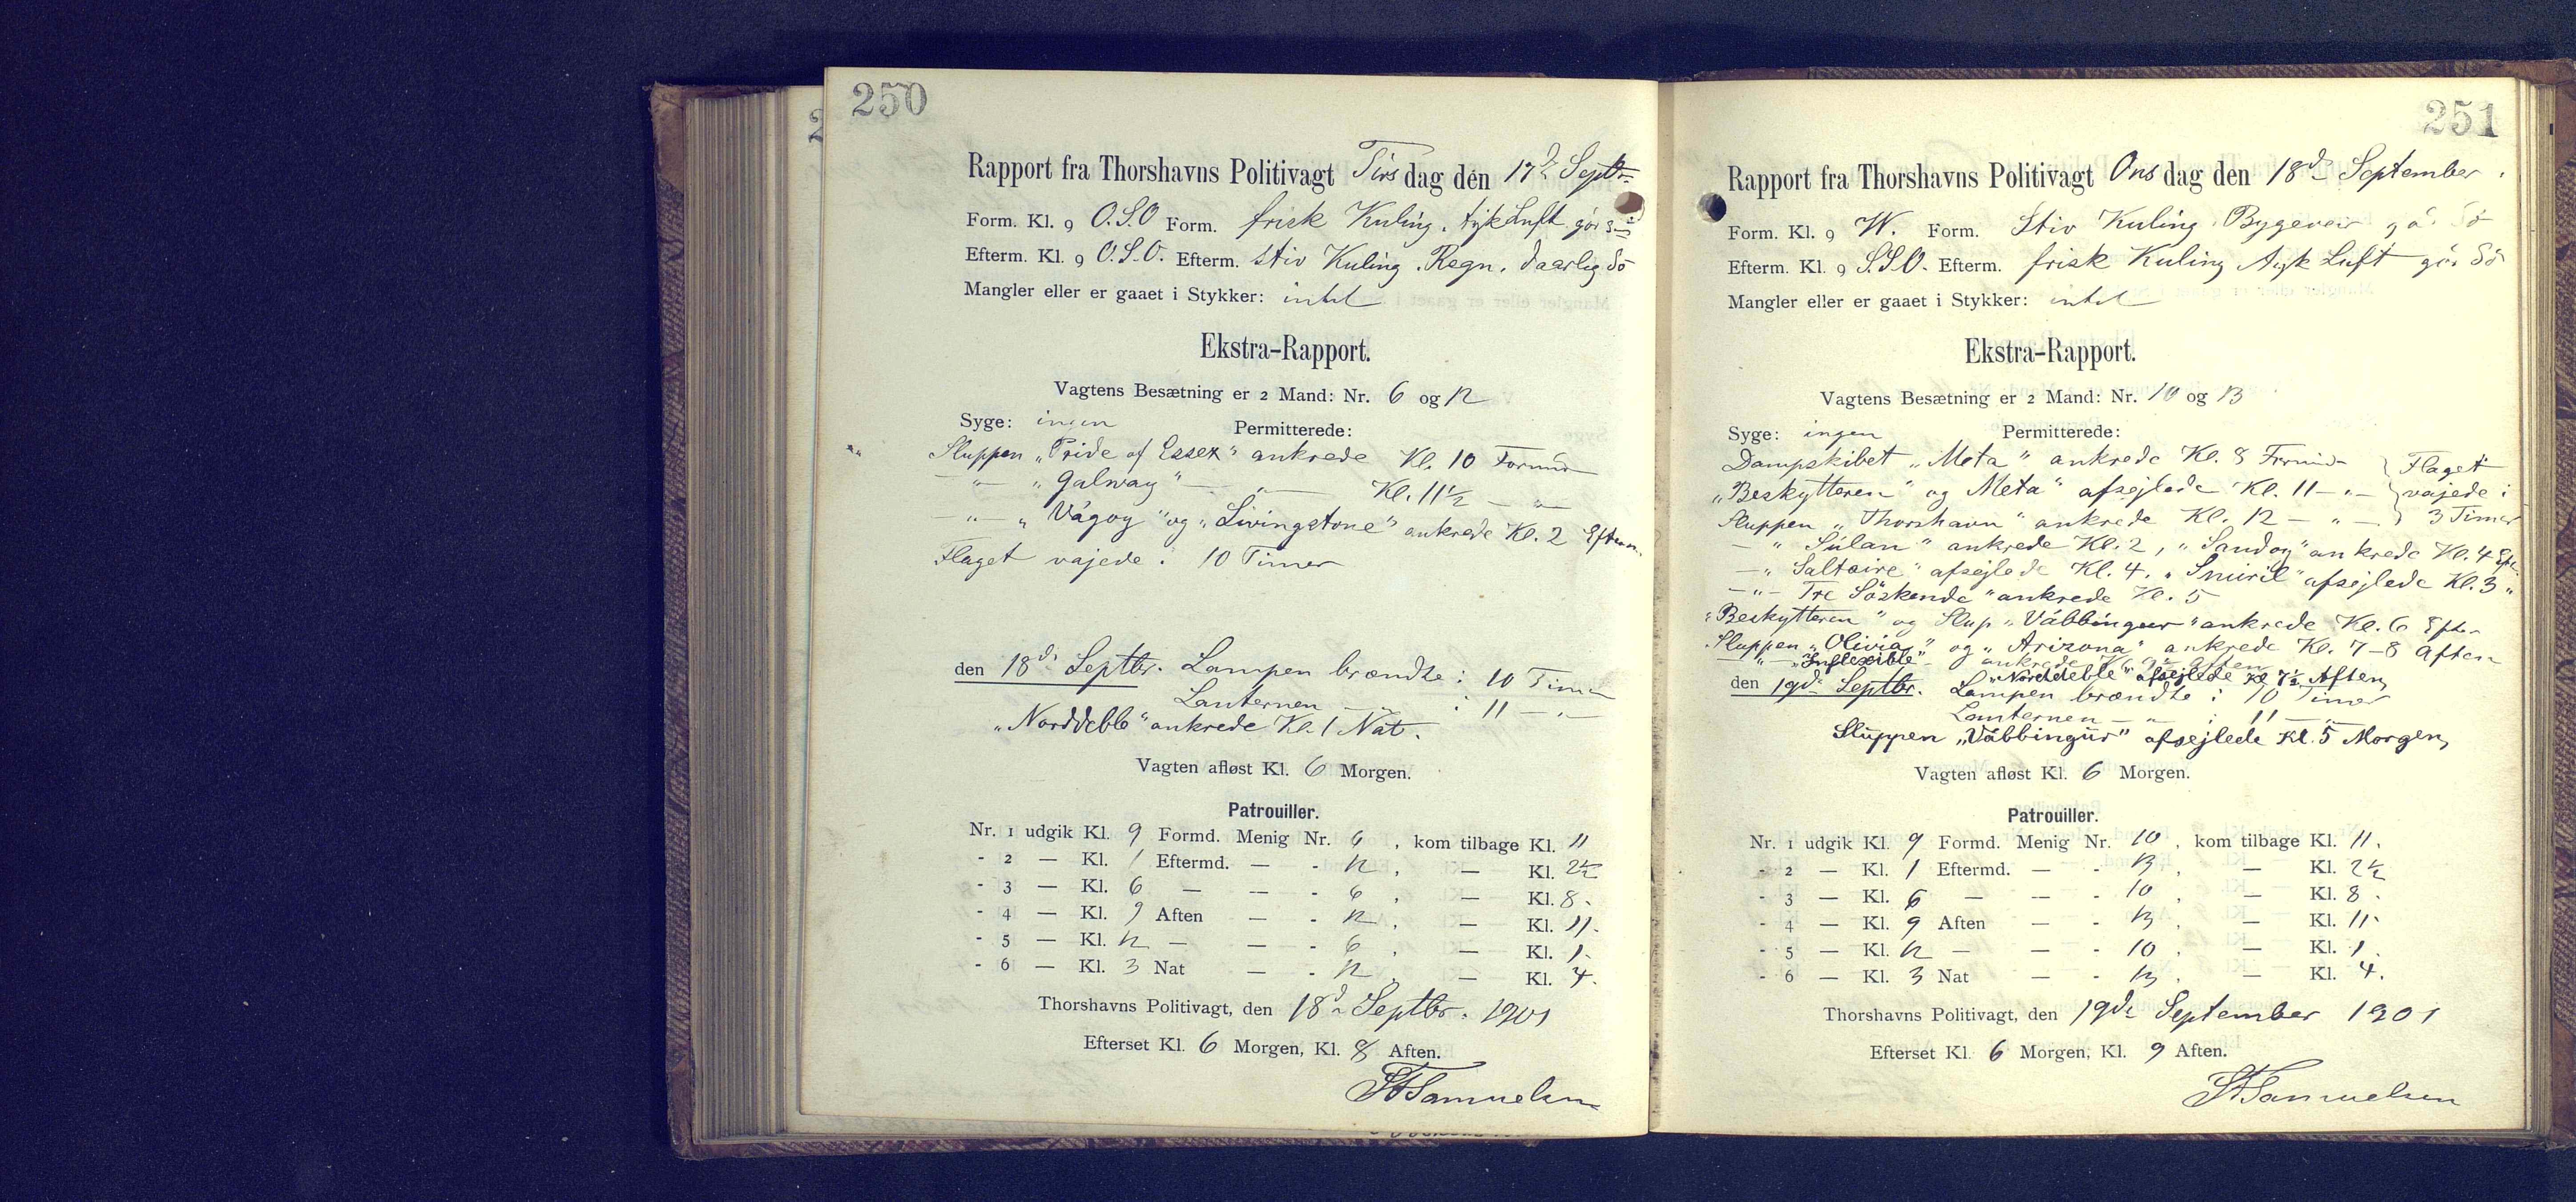 250
Rapport fra Thorshavns Politivagt Tirsdag den 17d Septbr.
Form. Kl. 9 O.S.O Form. frisk Kuling. tyk Luft gör Sö
Efterm. Kl. 9 O.S.O. Efterm. stiv Kuling. Regn. daarlig Sö
Mangler eller er gaaet i Stykker: intet
Ekstra-Rapport.
Vagtens Besætning er 2 Mand: Nr. 6 og 12
Syge: ingen Permitterede:
Sluppen „Pride of Essex" ankrede Kl. 10 Formid
— " — „Galway" — " — Kl. 11½ — " —
— " — „Vágoy" og „Livingstone" ankrede Kl. 2 Efterm.
Flaget vajede : 10 Timer
den 18d Septbr. Lampen brændte : 10 Timer
Lanternen — " — : 11 — " —
„Norddeble" ankrede Kl. 1 Nat.
Vagten afløst Kl. 6 Morgen.
Patrouiller.
Nr. 1 udgik Kl. 9 Formd. Menig Nr. 6, kom tilbage Kl. 11
- 2 — Kl. 1 Eftermd. — - 12, — Kl. 2½
- 3 — Kl. 6 — — - 6, — Kl. 8.
- 4 — Kl. 9 Aften — - 12, — Kl. 11.
- 5 — Kl. 12 — — - 6, — Kl. 1.
- 6 — Kl. 3 Nat — - 12, — Kl. 4.
Thorshavns Politivagt, den 18d Septbr. 1901
Efterset Kl. 6 Morgen, Kl. 8 Aften.
Samuelsen
251
Rapport fra Thorshavns Politivagt Onsdag den 18d September.
Form. Kl. 9 W. Form. Stiv Kuling Bygeveir gör Sö
Efterm. Kl. 9 S.S.O. Efterm. frisk Kuling tyk Luft gör Sö
Mangler eller er gaaet i Stykker: intet
Ekstra-Rapport.
Vagtens Besætning er 2 Mand: Nr. 10 og 13
Syge: ingen Permitterede:
Dampskibet „Meta" ankrede Kl. 8 Formid } Flaget
„Beskytteren" og Meta" afsejlede Kl. 11 — " — } vajede :
Sluppen „Thorshavn" ankrede Kl. 12 — " — } 3 Timer
— " Súlan" ankrede Kl. 2, „Sandoy" ankrede Kl. 4 Eft.
— " Saltaire" afsejlede Kl. 4. „Smiril" afsejlede Kl. 3 "
— " — Tre Söskende" ankrede Kl. 5
„Beskytteren" og Slup „Vábbingur" ankrede Kl. 6 Efter
Sluppen „Olivia" og „Arizona" ankrede Kl. 7-8 Aften
— " — „Inflexible" — ankrede Kl. Aften
„Norddeble" afsejlede Kl 7½ Aften,
den 19d Septbr. Lampen brændte : 10 Timer
Lanternen — " — : 11 — " —
Sluppen „Vábbingur" afsejlede Kl. 5 Morgen,
Vagten afløst Kl. 6 Morgen.
Patrouiller.
Nr. 1 udgik Kl. 9 Formd. Menig Nr. 10, kom tilbage Kl. 11.
- 2 — Kl. 1 Eftermd. — - 13, — Kl. 2½
- 3 — Kl. 6 — — - 10, — Kl. 8.
- 4 — Kl. 9 Aften — - 13, — Kl. 11.
- 5 — Kl. 12 — — - 10, — Kl. 1.
- 6 — Kl. 3 Nat — - 13, — Kl. 4.
Thorshavns Politivagt, den 19d September 1901
Efterset Kl. 6 Morgen, Kl. 9 Aften.
Samuelsen